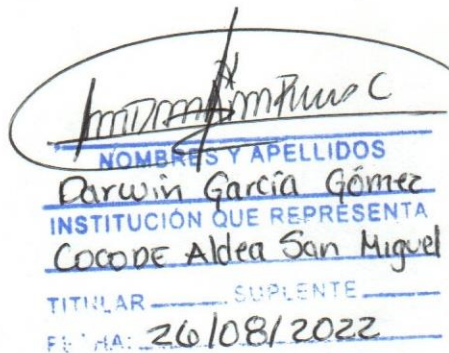 NOMBRES Y APELLIDOS
Darwin García Gómez
INSTITUCIÓN QUE REPRESENTA
COCODE Aldea San Miguel
TITULAR SUPLENTE
FECHA: 26/08/2022